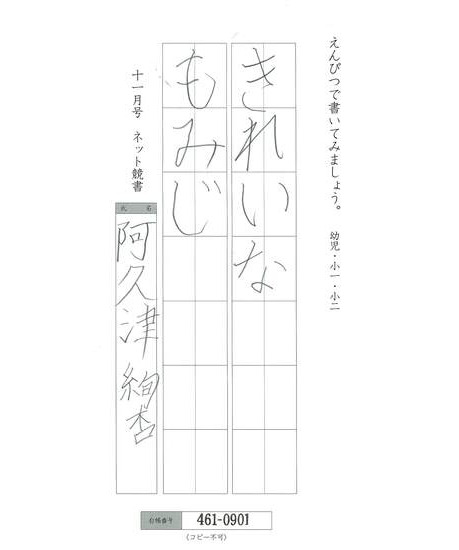 えんぴつで書いてみましょう。 幼児・小一・小二
きれいな
もみじ
十一月号 ネット競書
氏名
阿久津 絢杏
台帳番号 461-0901
(コピー不可)